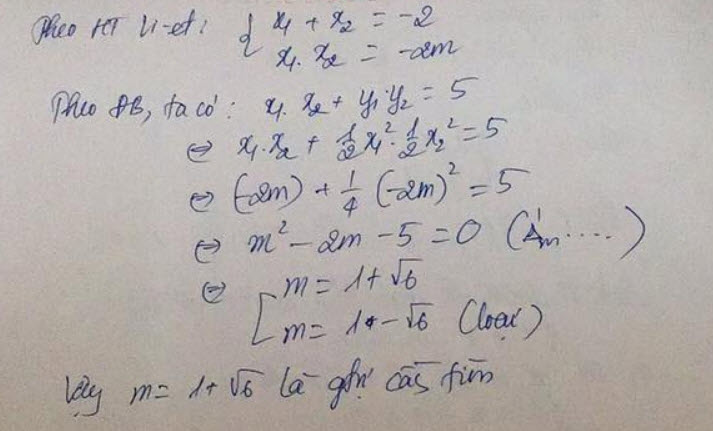 Theo HT Vi-et: { x₁ + x₂ = -2
x₁. x₂ = -2m
Theo ĐB, ta có: x₁. x₂ + y₁.y₂ = 5
⇔ x₁.x₂ + 1/2 x₁². 1/2 x₂² = 5
⇔ (-2m) + 1/4 (-2m)² = 5
⇔ m² - 2m - 5 = 0 (Δ'm ....)
⇔ [ m = 1 + √6
m = 1 - √6 (loại)
Vậy m = 1 + √6 là gtrị cần tìm